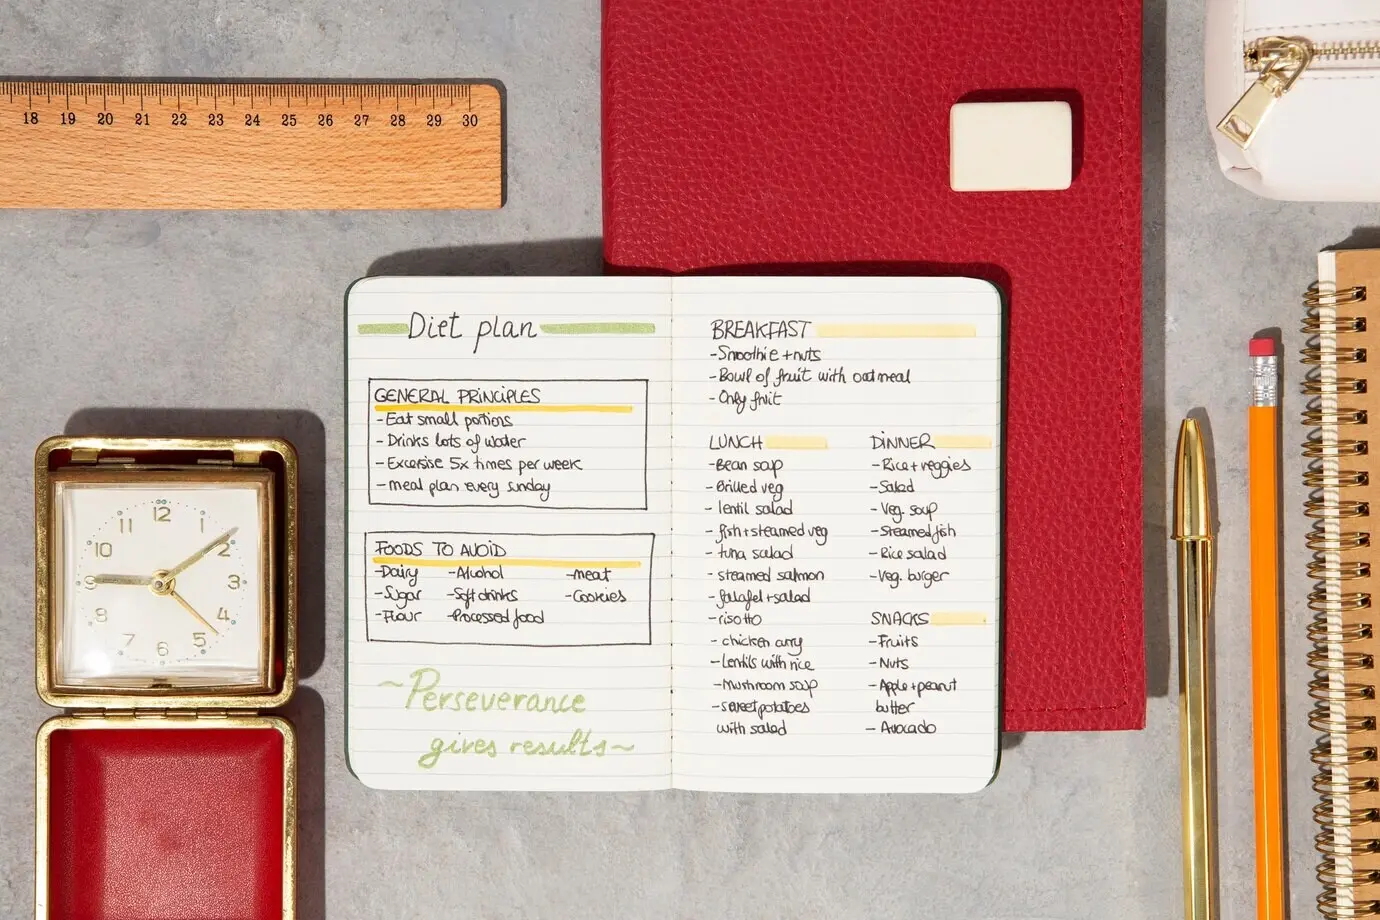 18 19 20 21 22 23 24 25 26 27 28 29 30
Diet plan
GENERAL PRINCIPLES
-Eat small portions
-Drinks lots of water
-Excersise 5x times per week
-meal plan every sunday
FOODS TO AVOID
-Dairy -Alcohol -meat
-Sugar -Soft drinks -Cookies
-Flour -Processed food
~Perseverance
gives results~
BREAKFAST
-Smoothie+nuts
-Bowl of fruit with oatmeal
-Only fruit
LUNCH
-Bean soup
-Grilled veg
-lentil salad
-fish+steamed veg
-tuna salad
-steamed salmon
-falafel+salad
-risotto
-chicken curry
-Lentils with rice
-Mushroom soup
-sweet potatoes
with salad
DINNER
-Rice+veggies
-Salad
-Veg. soup
-Steamed fish
-Rice salad
-Veg. burger
SNACKS
-Fruits
-Nuts
-Apple+peanut
butter
-Avocado
12
11 1
10 2
9 3
8 4
7 5
6